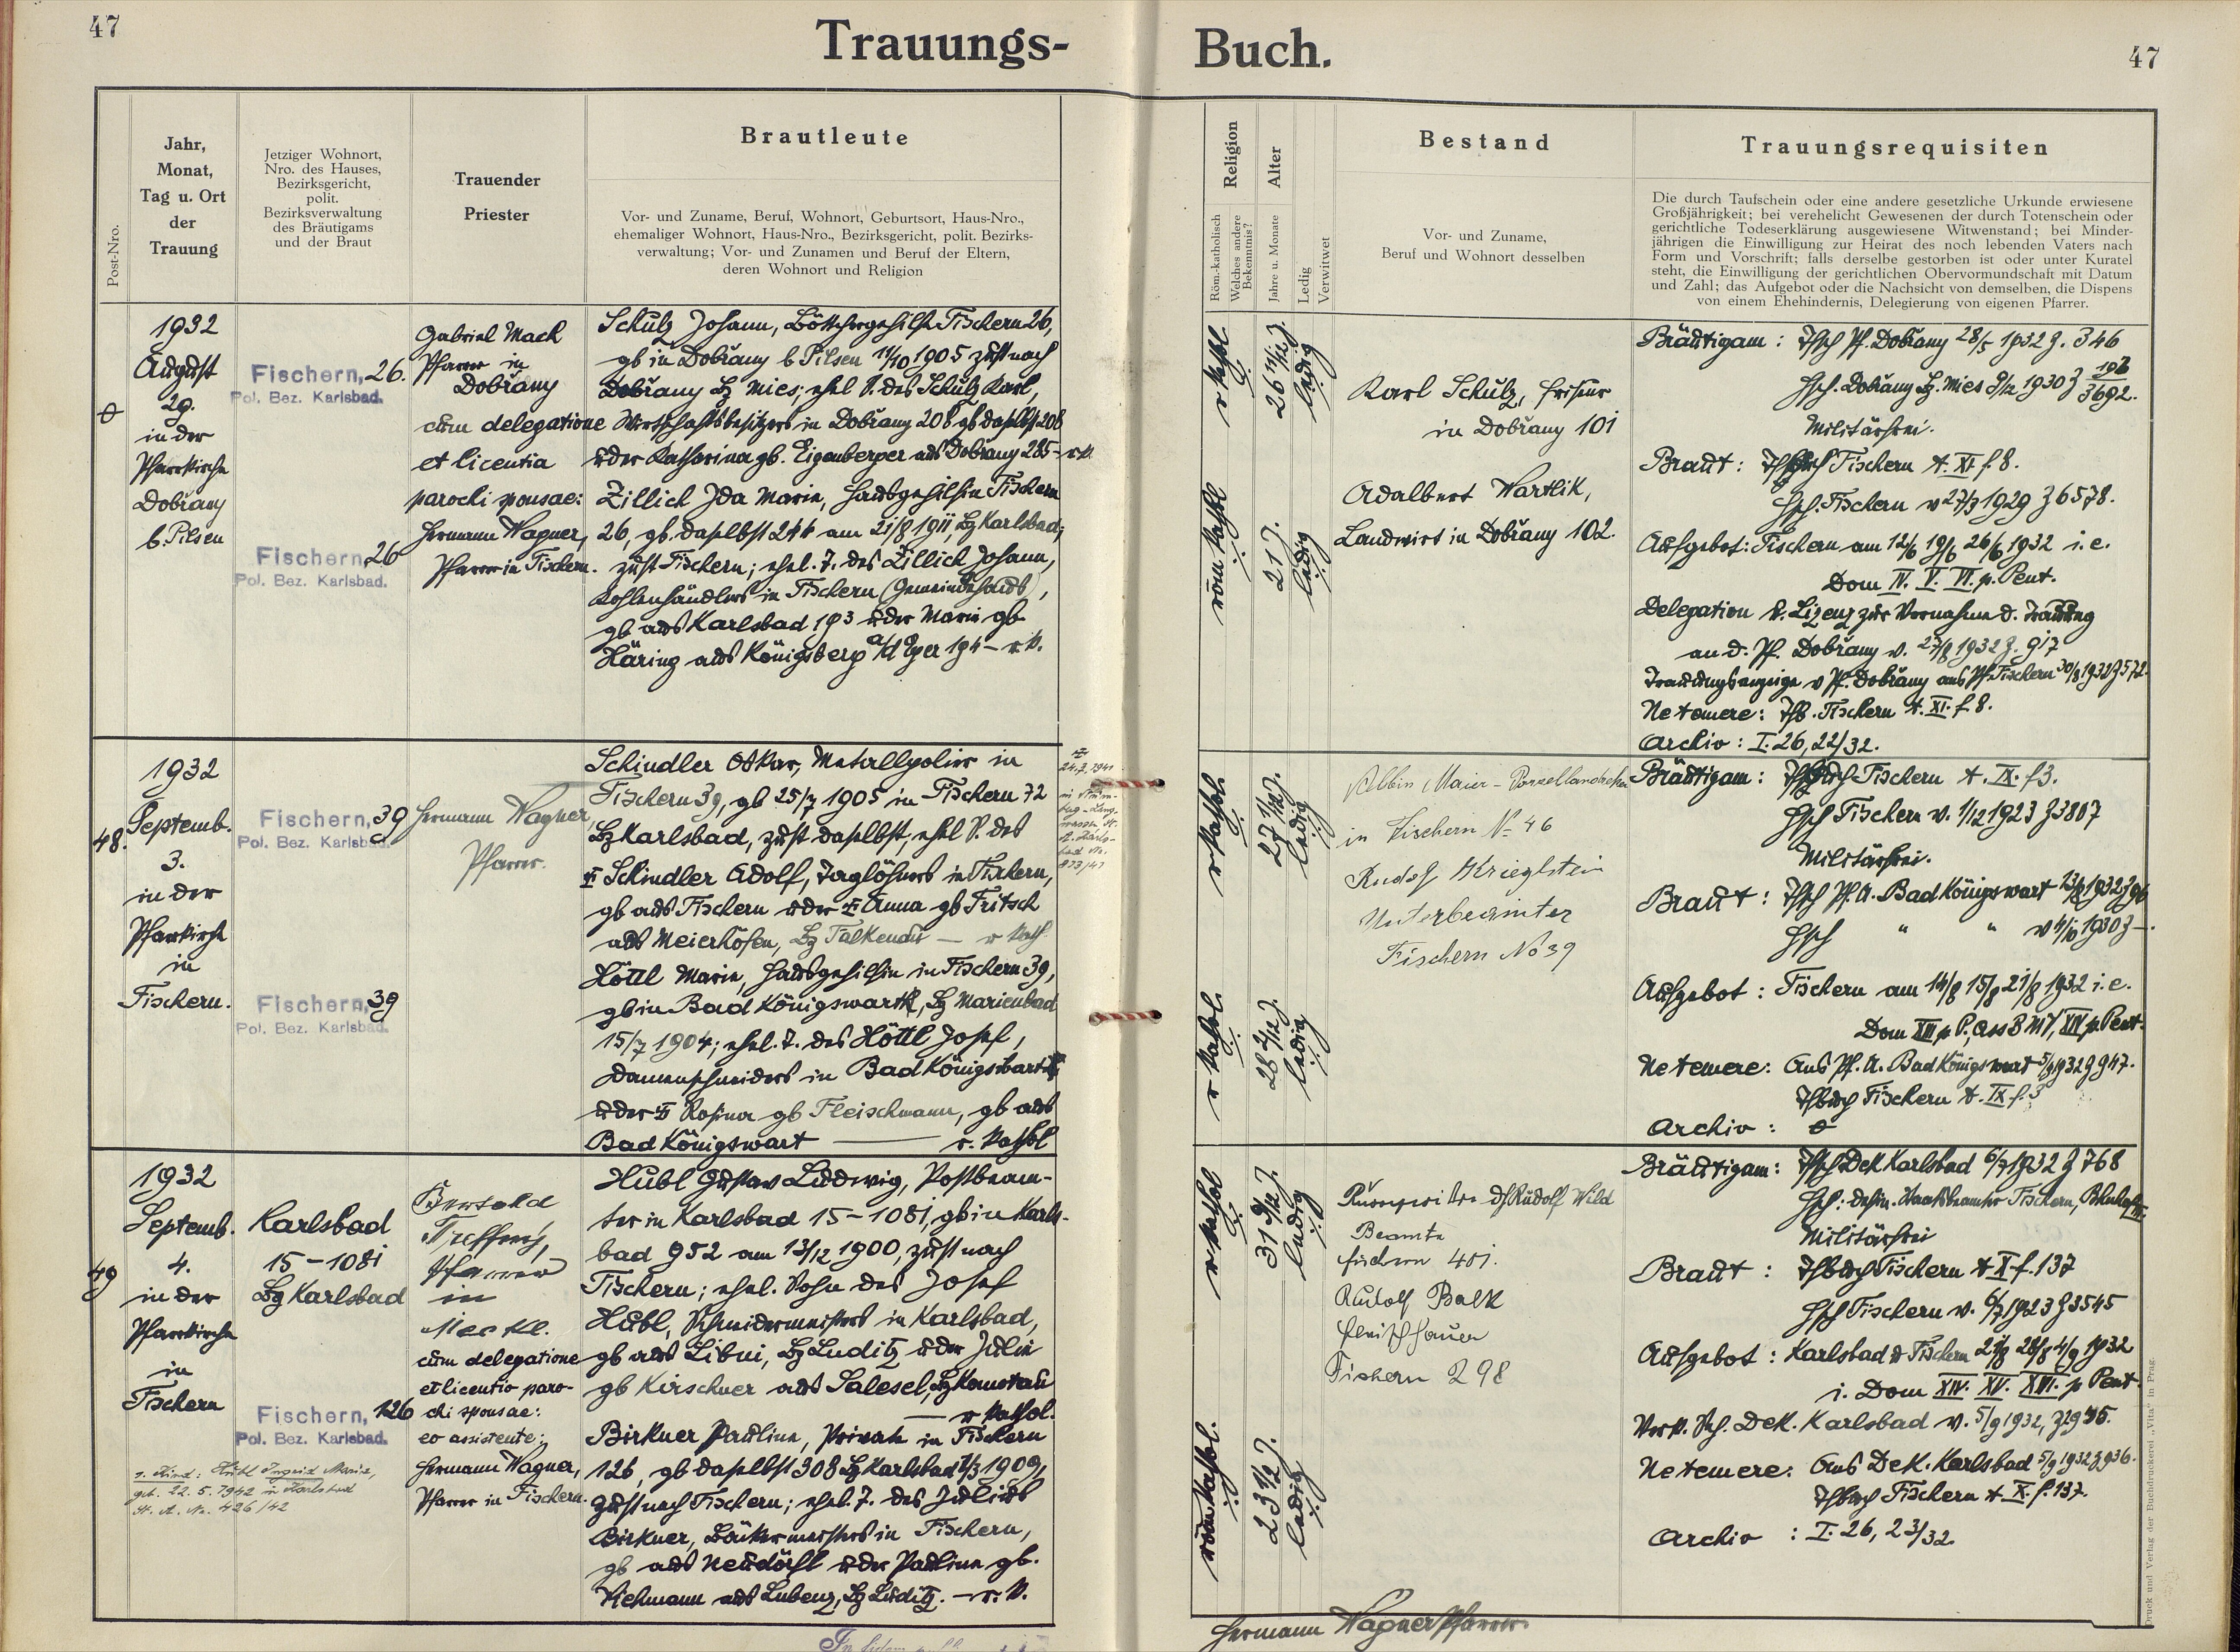 47
Trauungs-
Buch.
47
Post-Nro.
Jahr,
Monat,
Tag u. Ort
der
Trauung
Jetziger Wohnort,
Nro. des Hauses,
Bezirksgericht,
polit.
Bezirksverwaltung
des Bräutigams
und der Braut
Trauender
Priester
Brautleute
Vor- und Zuname, Beruf, Wohnort, Geburtsort, Haus-Nro.,
ehemaliger Wohnort, Haus-Nro., Bezirksgericht, polit. Bezirks-
verwaltung; Vor- und Zunamen und Beruf der Eltern,
deren Wohnort und Religion
Religion
Röm.-katholisch
Welches andere
Bekenntnis?
Alter
Jahre u. Monate
Ledig
Verwitwet
Bestand
Vor- und Zuname,
Beruf und Wohnort desselben
Trauungsrequisiten
Die durch Taufschein oder eine andere gesetzliche Urkunde erwiesene
Großjährigkeit; bei verehelicht Gewesenen der durch Totenschein oder
gerichtliche Todeserklärung ausgewiesene Witwenstand; bei Minder-
jährigen die Einwilligung zur Heirat des noch lebenden Vaters nach
Form und Vorschrift; falls derselbe gestorben ist oder unter Kuratel
steht, die Einwilligung der gerichtlichen Obervormundschaft mit Datum
und Zahl; das Aufgebot oder die Nachsicht von demselben, die Dispens
von einem Ehehindernis, Delegierung von eigenen Pfarrer.
1932
August
29.
in der
Pfarrkirche
Dobřany
b. Pilsen
Fischern, 26.
Pol. Bez. Karlsbad.
Fischern, 26
Pol. Bez. Karlsbad.
Gabriel Mach
Pfarrer in
Dobřany
cum delegatione
et licentia
parochi sponsae:
Hermann Wagner,
Pfarrer in Fischern.
Schulz Johann, Böttchergehilfe Fischern 26,
gb in Dobřany b Pilsen 11/10 1905 zust nach
Dobřany Bz Mies; ehel S. des Schulz Karl,
Wirtschaftsbesitzers in Dobřany 208 gb daselbst 208
u der Katharina gb. Eigenberger aus Dobřany 285 - rk.
Zillich Ida Marie, Hausgehilfin Fischern
26, gb. daselbst 244 am 21/8 1911, Bz Karlsbad;
zust Fischern; ehel. T. des Zillich Johann,
Kohlenhändlers in Fischern (Gemeindehaus),
gb aus Karlsbad 193 u der Marie gb
Häring aus Königsberg a/d Eger 194 - r k.
r kathol
26 11/12 J.
ledig
röm kathl
21 J.
ledig
Karl Schulz, Friseur
in Dobřany 101
Adalbert Wartlik,
Landwirt in Dobřany 102.
Bräutigam: Tfsch Pf. Dobřany 28/5 1932 Z. 346
Hsch. Dobřany Bz. Mies 9/12 1930 Z 3692.
Militärfrei.
Braut: Fischern t. XI. f. 8.
Hsch. Fischern v 27/3 1929 Z 6578.
Aufgebot: Fischern am 12/6 19/6 26/6 1932 i. e.
Dom IV. V. VI. p. Pent.
Delegation u. Lizenz zur Vornahme d. Trauung
an d. Pf. Dobřany v. 27/8 1932 Z. 917
Trauungsanzeige v Pf. Dobřany ans Pf. Fischern 30/8 1932 Z 572.
Ne temere: Tfb. Fischern t. XI. f. 8.
Archiv: I. 26, 22/32.
48.
1932
Septemb.
3.
in der
Pfarrkirche
in
Fischern.
Fischern, 39
Pol. Bez. Karlsbad.
Fischern, 39
Pol. Bez. Karlsbad.
Hermann Wagner,
Pfarrer.
Schindler Oskar, Metallpolier in
Fischern 39, gb 25/7 1905 in Fischern 72
Bz Karlsbad, zust daselbst, ehel S. des
Schindler Adolf, Taglöhners in Fischern,
gb aus Fischern u der Anna gb Fritsch
aus Meierhöfen, Bz Falkenau — r kath.
Höttl Marie, Hausgehilfin in Fischern 39,
gb in Bad Königswarth, Bz Marienbad
15/7 1904; ehel. T. des Höttl Josef,
Damenschneiders in Bad Königswarth
u der Rosina gb Fleischmann, gb aus
Bad Königswart — r. kathol
24.7.1941
r kathol.
27 1/12 J.
ledig
r kathol.
28 2/12 J.
ledig
Albin Maier - Porzellandreher
in Fischern N- 46
Rudolf Krieglstein
Unterbeamter
Fischern No 39
Bräutigam: Fischern t. IX. f 3.
Hsch Fischern v. 1/12 1923 Z 3807
Militärfrei.
Braut: Tfsch Pf. A. Bad Königswart 13/8 1932 Z 96
Hsch " " v 4/10 1930 Z —.
Aufgebot: Fischern am 14/8 15/8 21/8 1932 i. e.
Dom XIII p P, Ass B M V, XIV p Pent.
Ne temere: Ans Pf. A. Bad Königswart 5/9 1932 Z 947.
Tfbuch Fischern t. IX f. 3
Archiv:
49
1932
Septemb.
4.
in der
Pfarrkirche
in
Fischern
Karlsbad
15 - 1081
Bz Karlsbad
Fischern, 126
Pol. Bez. Karlsbad.
1. Kind: Hubl Ingrid Maria,
geb. 22. 5. 1942 in Karlsbad
St. A. Nr. 426/42
Bertold
Pfarrer
in
cum delegatione
et licentia paro-
chi sponsae:
eo assistente:
Hermann Wagner,
Pfarrer in Fischern.
Hubl Gustav Ludwig, Postbeam-
ter in Karlsbad 15 - 1081, gb in Karls-
bad 952 am 13/12 1900, zust nach
Fischern; ehel. Sohn des Josef
Hubl, Schneidermeisters in Karlsbad,
gb aus Libni, Bz Luditz u der Julie
gb Kirschner aus Salesel, Bz Komotau
— r kathol.
Birkner Pauline, Private in Fischern
126, gb daselbst 308 Bz Karlsbad 7/3 1909,
zust nach Fischern; ehel. T. des Julius
Birkner, Bäckermeisters in Fischern,
gb aus Neudörfl u der Pauline gb.
Hehmann aus Lubenz, Bz Luditz. — r. k.
r kathol
31 9/12 J.
ledig
röm kathol.
23 1/2 J.
ledig
Rudolf Wild
Beamte
Fischern 401.
Rudolf Balk
Fleischhauer
Fischern 298
Bräutigam: Tfsch Dek Karlsbad 6/7 1932 Z 768
Hsch: defin. Staatsbeamter Fischern,
Militärfrei
Braut: Tfbuch Fischern t X f. 137
Hsch Fischern v. 6/7 1923 Z 3545
Aufgebot: Karlsbad u Fischern 21/8 28/8 4/9 1932
i. Dom XIV. XV. XVI. p Pent
Verk. Sch. Dek. Karlsbad v. 5/9 1932, Z 935.
Ne temere: Ans Dek. Karlsbad 5/9 1932 Z 936.
Tfbuch Fischern t. X. f. 137.
Archiv: I. 26, 23/32.
Hermann Wagner Pfarrer.
Druck und Verlag der Buchdruckerei „Vita" in Prag.